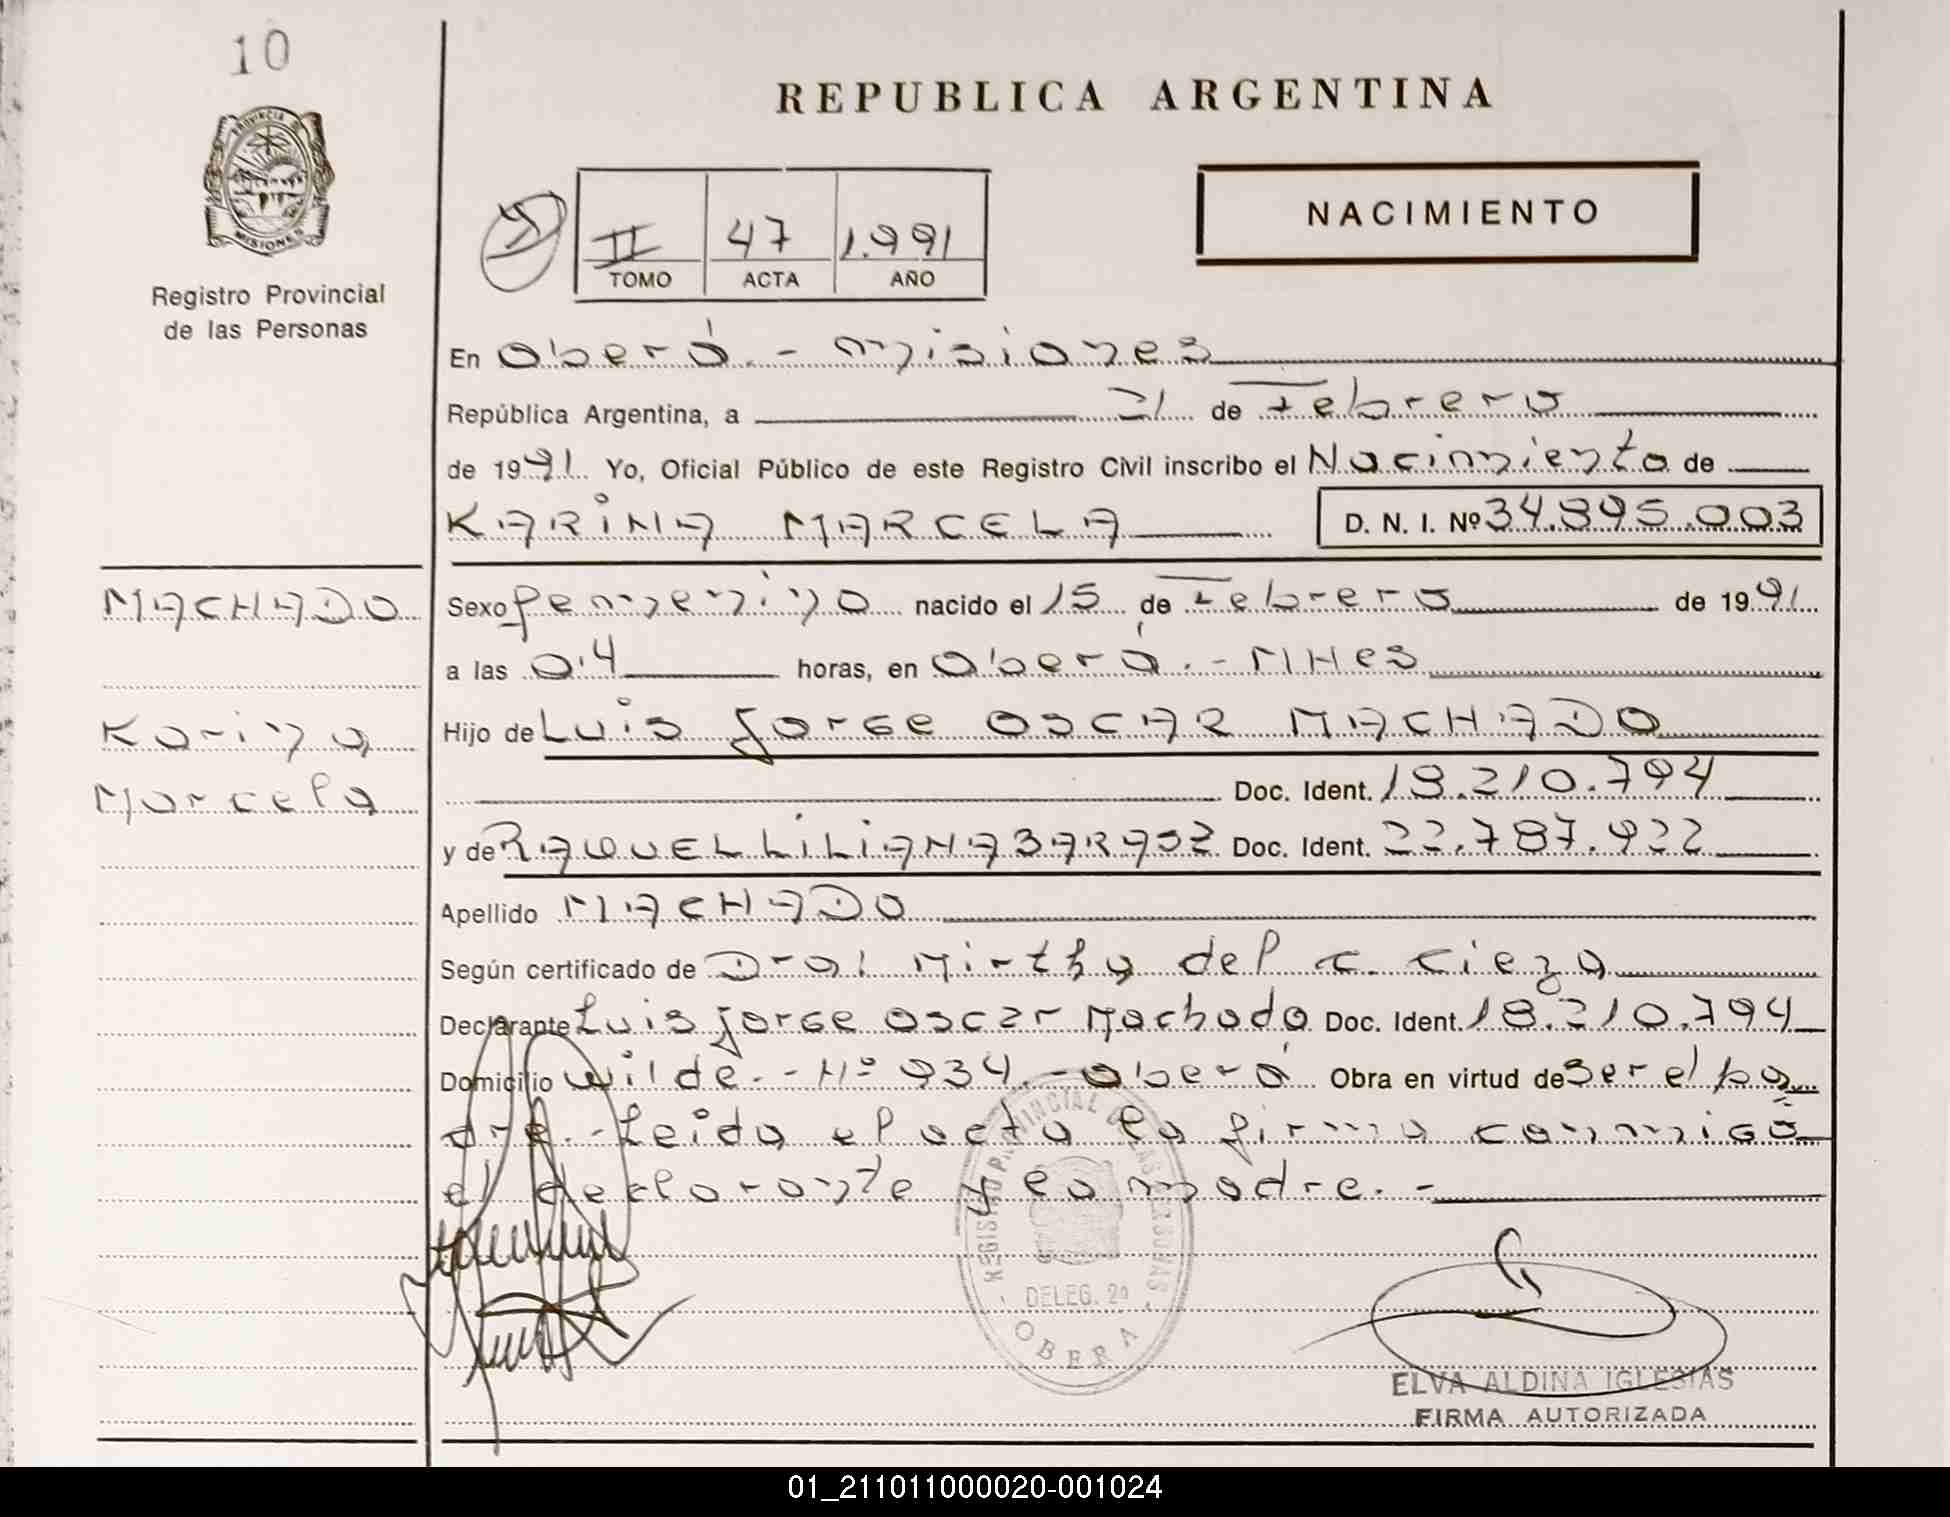 10
REPUBLICA ARGENTINA
PROVINCIA DE
MISIONES
NACIMIENTO
II 47 1.991
TOMO ACTA AÑO
Registro Provincial
de las Personas
En Oberá.- Misiones
República Argentina, a 21 de Febrero
de 1991 Yo, Oficial Público de este Registro Civil inscribo el Nacimiento de
KARINA MARCELA D. N. I. Nº 34.895.003
MACHADO
Sexo femenino nacido el 15 de Febrero de 1991
a las 04 horas, en Oberá.- MNes
Karina
Hijo de Luis Jorge OSCAR MACHADO
Marcela
Doc. Ident. 18.210.794
y de RAQUEL LILIANA Doc. Ident. 22.787.922
Apellido MACHADO
Según certificado de Dra! Mirtha del C. Cieza
Declarante Luis Jorge Oscar Machado Doc. Ident. 18.210.794
Domicilio Wilde.- Nº 934.- Oberá Obra en virtud de ser el pa
dre.- Leida el acta la firma conmigo
el declarante y la madre.-
REGISTRO PROVINCIAL DE LAS PERSONAS
DELEG. 2ª
OBERA
ELVA ALDINA IGLESIAS
FIRMA AUTORIZADA
01_211011000020-001024